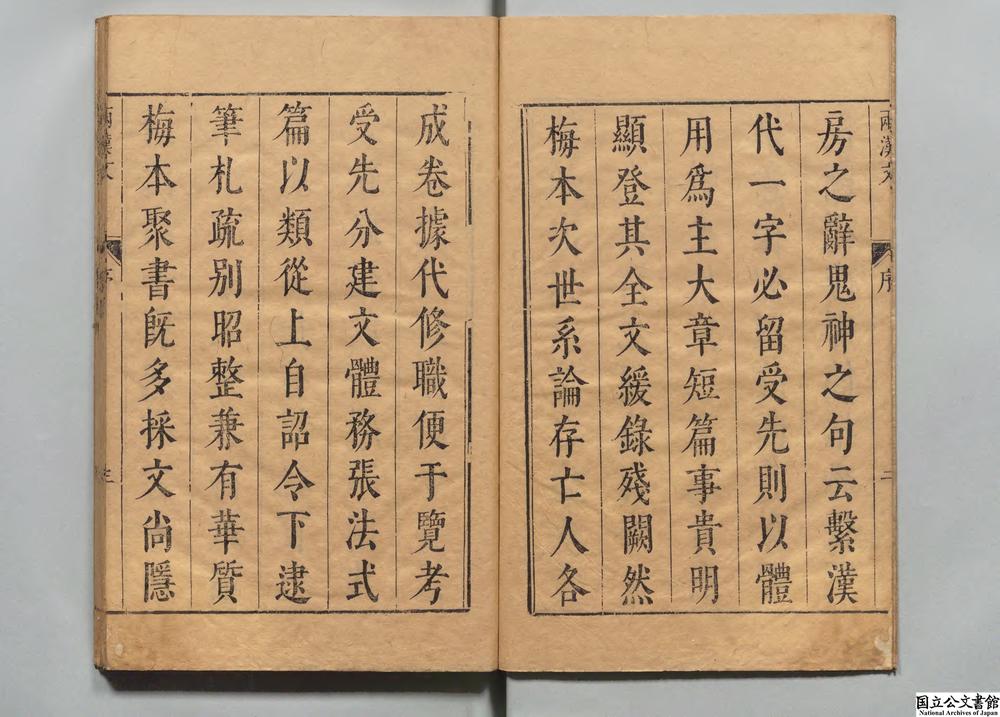 房之辭鬼神之句云繫漢
代一字必留受先則以體
用爲主大章短篇事貴明
顯登其全文緩錄殘闕然
梅本次世系論存亡人各
成卷據代修職便于覽考
受先分建文體務張法式
篇以類從上自詔令下逮
筆札疏别昭整兼有華質
梅本聚書既多採文尙隱
兩漢文
序
二
国立公文書館
National Archives of Japan